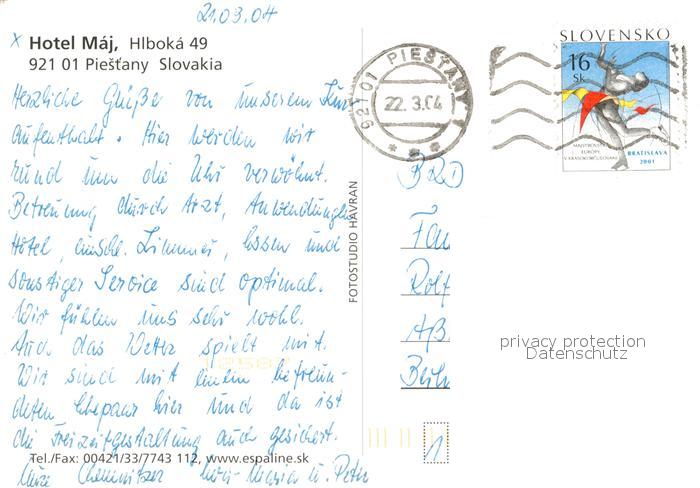 21.03.04
x Hotel Máj, Hlboká 49
921 01 Piešťany Slovakia
Herzliche Grüße von unserem Kur-
aufenthalt. Hier werden wir
rund um die Uhr verwöhnt.
Betreuung durch Arzt, Anwendungen
Hotel, einschl. Zimmer, Essen und
sonstiger Service sind optimal.
Wir fühlen uns sehr wohl.
Auch das Wetter spielt mit.
Wir sind mit einem befreun-
deten Ehepaar hier und da ist
die Freizeitgestaltung auch gesichert.
Tel./Fax: 00421/33/7743 112, www.espaline.sk
Eure Chemnitzer Maria u. Peter
FOTOSTUDIO HAVRAN
921 01 PIEŠŤANY 1
22.3.04
SLOVENSKO
16
Sk
MAJSTROVSTVÁ
EURÓPY
V KRASOKORČUĽOVANÍ
BRATISLAVA
2001
BRD
Fam
Rolf
Aß
Berlin
1
privacy protection
Datenschutz